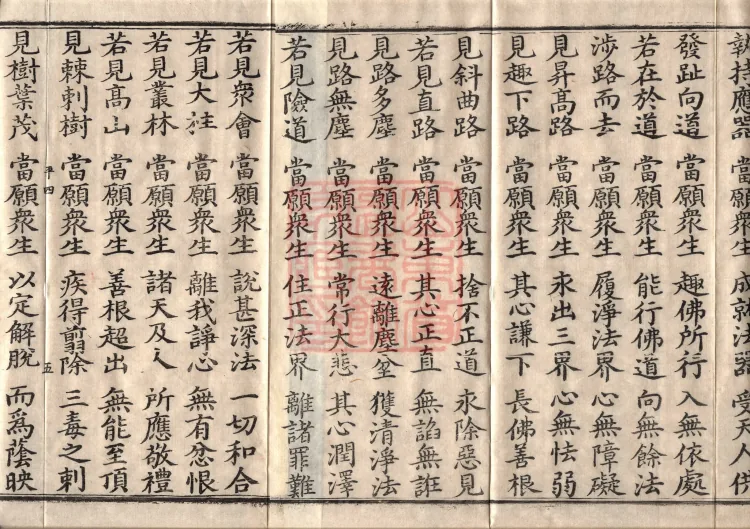 執持應器 當願衆生 成就法器 受天人供
發趾向道 當願衆生 趣佛所行 入無依處
若在於道 當願衆生 能行佛道 向無餘法
涉路而去 當願衆生 履淨法界 心無障礙
見昇高路 當願衆生 永出三界 心無怯弱
見趣下路 當願衆生 其心謙下 長佛善根
見斜曲路 當願衆生 捨不正道 永除惡見
若見直路 當願衆生 其心正直 無諂無誑
見路多塵 當願衆生 遠離塵坌 獲清淨法
見路無塵 當願衆生 常行大悲 其心潤澤
若見險道 當願衆生 住正法界 離諸罪難
若見衆會 當願衆生 說甚深法 一切和合
若見大柱 當願衆生 離我諍心 無有忿恨
若見叢林 當願衆生 諸天及人 所應敬禮
若見高山 當願衆生 善根超出 無能至頂
見棘刺樹 當願衆生 疾得翦除 三毒之刺
平四 五
見樹葉茂 當願衆生 以定解脫 而爲蔭映